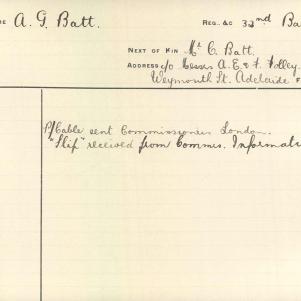 A. G. Batt. REG. &C 32nd Ba
NEXT OF KIN Mr C. Batt.
ADDRESS c/o Messrs A. E. & F. Tolley.
Weymouth St. Adelaide
P/Cable sent Commissioner London.
"Slip" received from Commrs. Informati